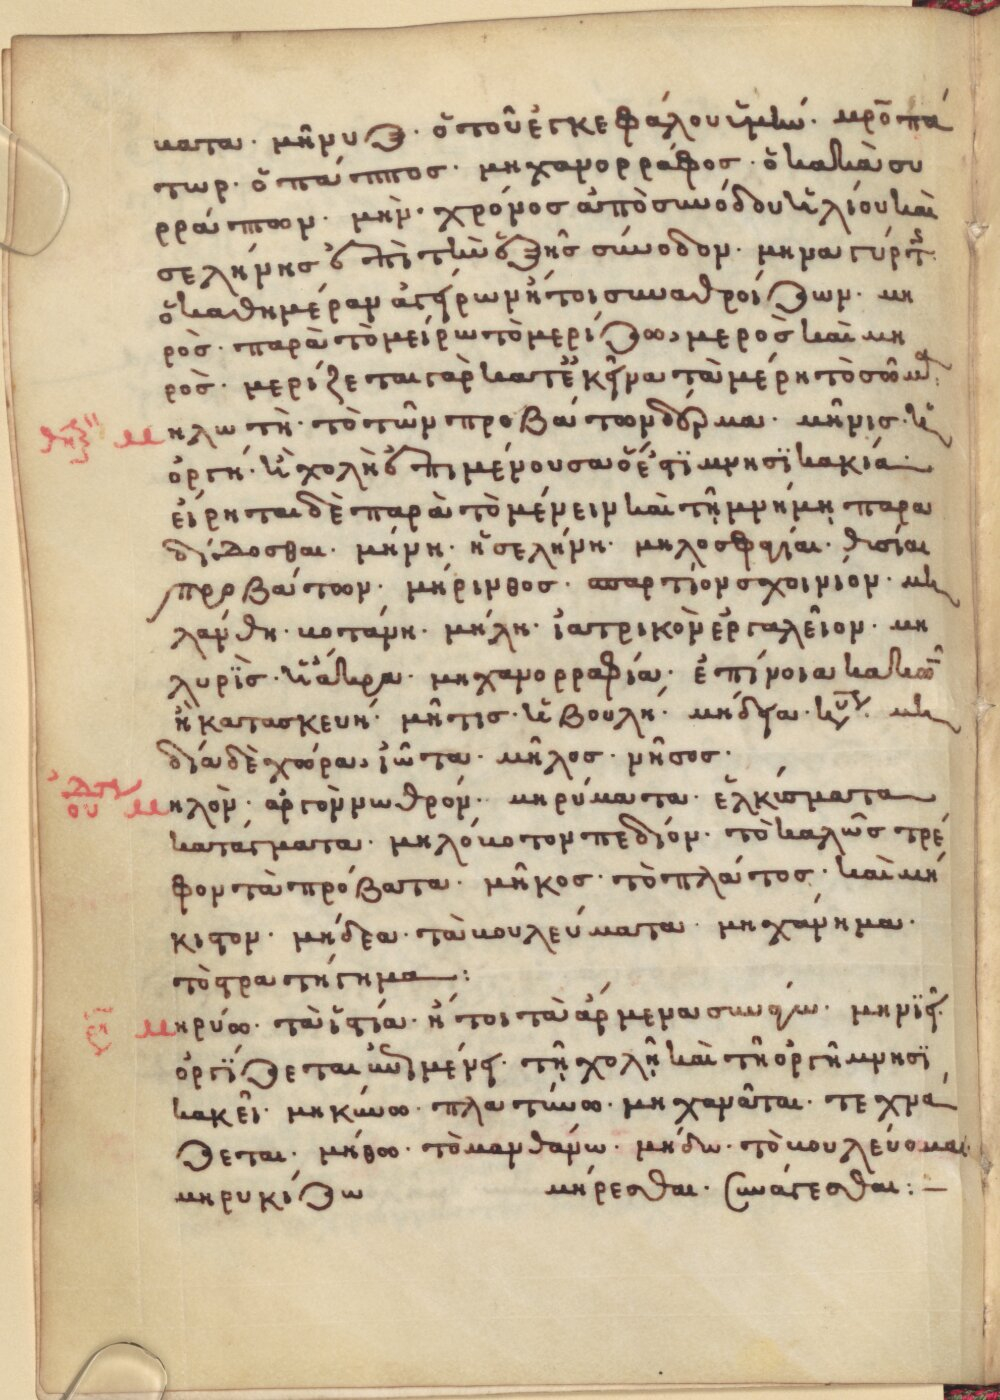 ματα· μῆνυξ· ὁ τοῦ ἐγκεφάλου ὑμήν· μητροπά
τωρ· ὁ πάππος· μηχανορράφος· ὁ κακὰ συ
ρράπτων· μὴν· χρόνος ἀπὸ συνόδου ἡλίου καὶ
σελήνης ἐπὶ τὴν ἑξῆς σύνοδον· μηναγύρτης·
ὁ καθημέραν ἀγείρων ἤτοι συναθροίζων· μη
ρὸς· παρὰ τὸ μείρω τὸ μερίζω, μερὸς καὶ μη
ρὸς· μερίζεται γὰρ κατ' ἐκεῖνα τὰ μέρη τὸ σῶμα:
θηλυ μηλωτὴ· τὸ τῶν προβάτων δέρμα· μῆνις· ἡ
ὀργή· ἡ χολὴ ἐπιμένουσα ὅ ἐστι μνησικακία·
εἴρηται δὲ παρὰ τὸ μένειν καὶ τῇ μνήμῃ παρα
δίδοσθαι· μήνη· ἡ σελήνη· μηλοσφαγίαι· θυσίαι
προβάτων· μήρινθος· σπαρτίον σχοινίον· μη
λάνθη· κοτάνη· μήλη· ἰατρικὸν ἐργαλεῖον· μη
λυρὶς· ἡ ἄκρα· μηχανορραφία· ἐπίνοια κακῶν
ἢ κατασκευή· μῆτις· ἡ βουλή· μήδεια· κύριον· μη
διά δὲ χώρα, ἰῶτα· μῆλος· νῆσος·
οὐ μηλὸν· ἀργὸν νωθρόν· μηρύματα· ἑλκίσματα
κατάγματα· μηλόκοτον πεδίον· τὸ καλῶς τρέ
φον τὰ πρόβατα· μῆκος· τὸ πλάτος· καὶ μή
κιστον· μήδεα· τὰ βουλεύματα· μηχάνημα·
τὸ στρατήγημα:
μηρύω· τὰ ἱστία· ἤτοι τὰ ἄρμενα συνάγω· μηνίει·
ὀργίζεται ἐπιμένει· τῇ χολῇ καὶ τῇ ὀργῇ μνησι
κακεῖ· μηκύνω· πλατύνω· μηχανᾶται· τεχνά
ζεται· μήθω· τὸ μανθάνω· μήδω· τὸ βουλεύομαι·
μηρυκίζω μήρεσθαι· συνάγεσθαι: